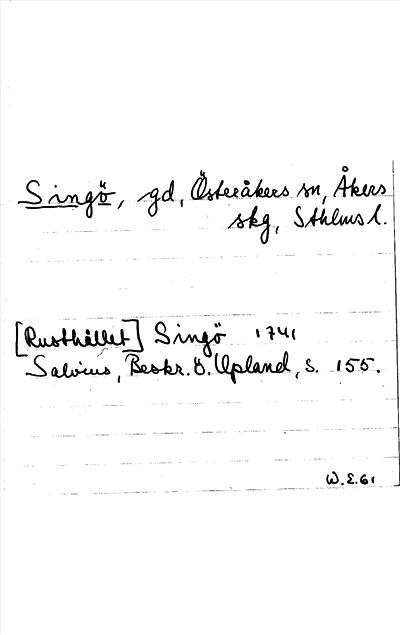 Singö, gd, Österåkers sn, Åkers
skg, Sthlms l.
[Rusthållet] Singö 1741
Salvius, Beskr. ö. Upland, s. 155.
W.E.61